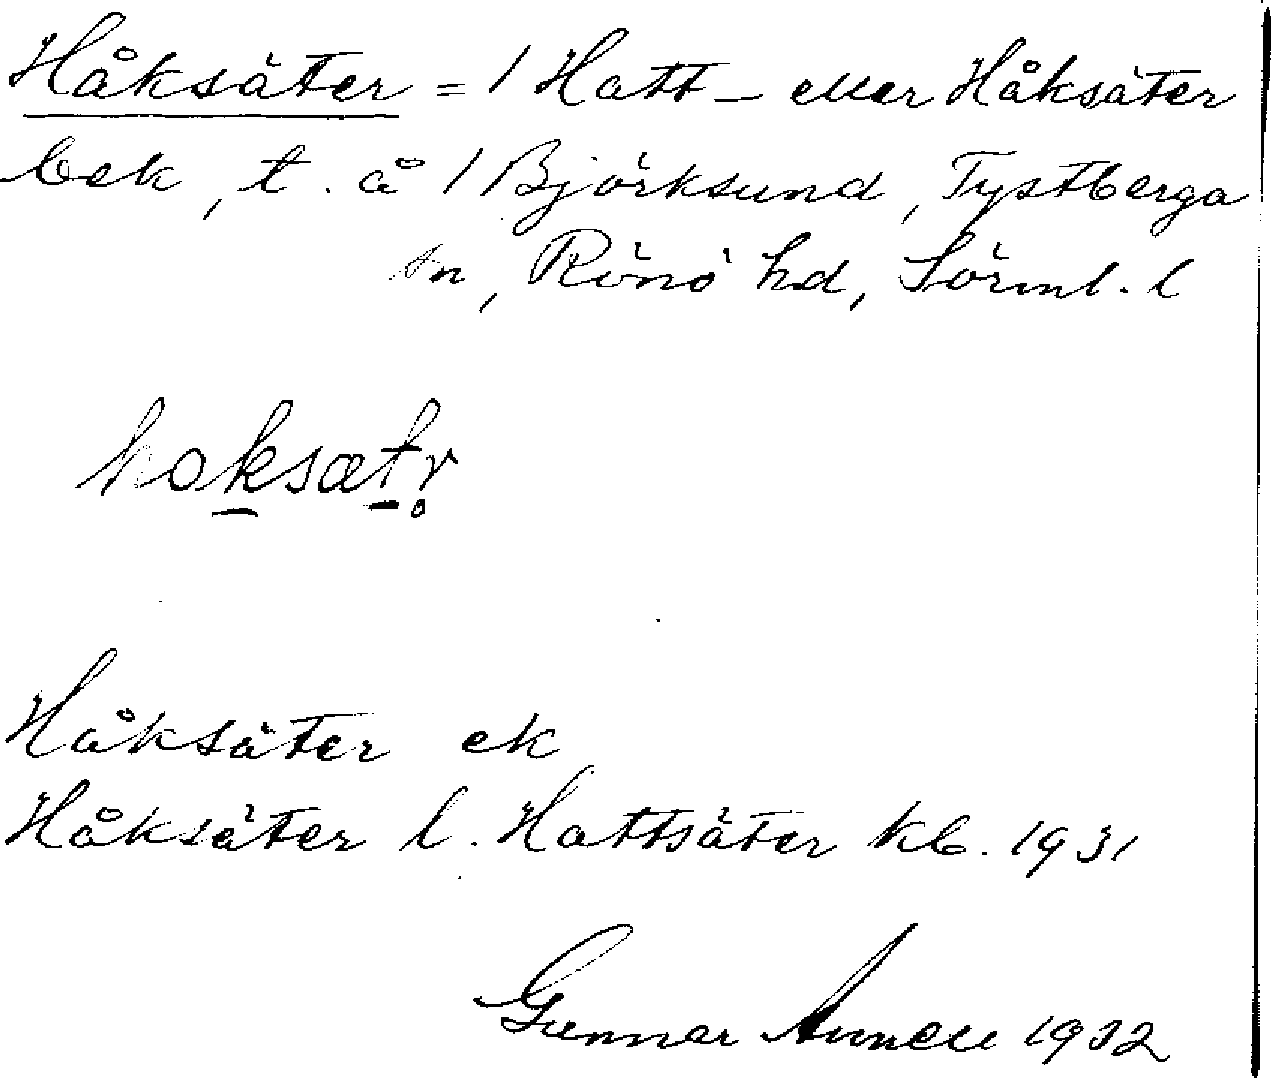 Håksäter = / Hatt- eller Håksäter
bek, t. å / Björksund, Tystberga
sn, Rönö hd, Sörml. l
hoksætr̥
Håksäter ek
Håksäter l. Hattsäter kb. 1931
Gunnar Annell 1932